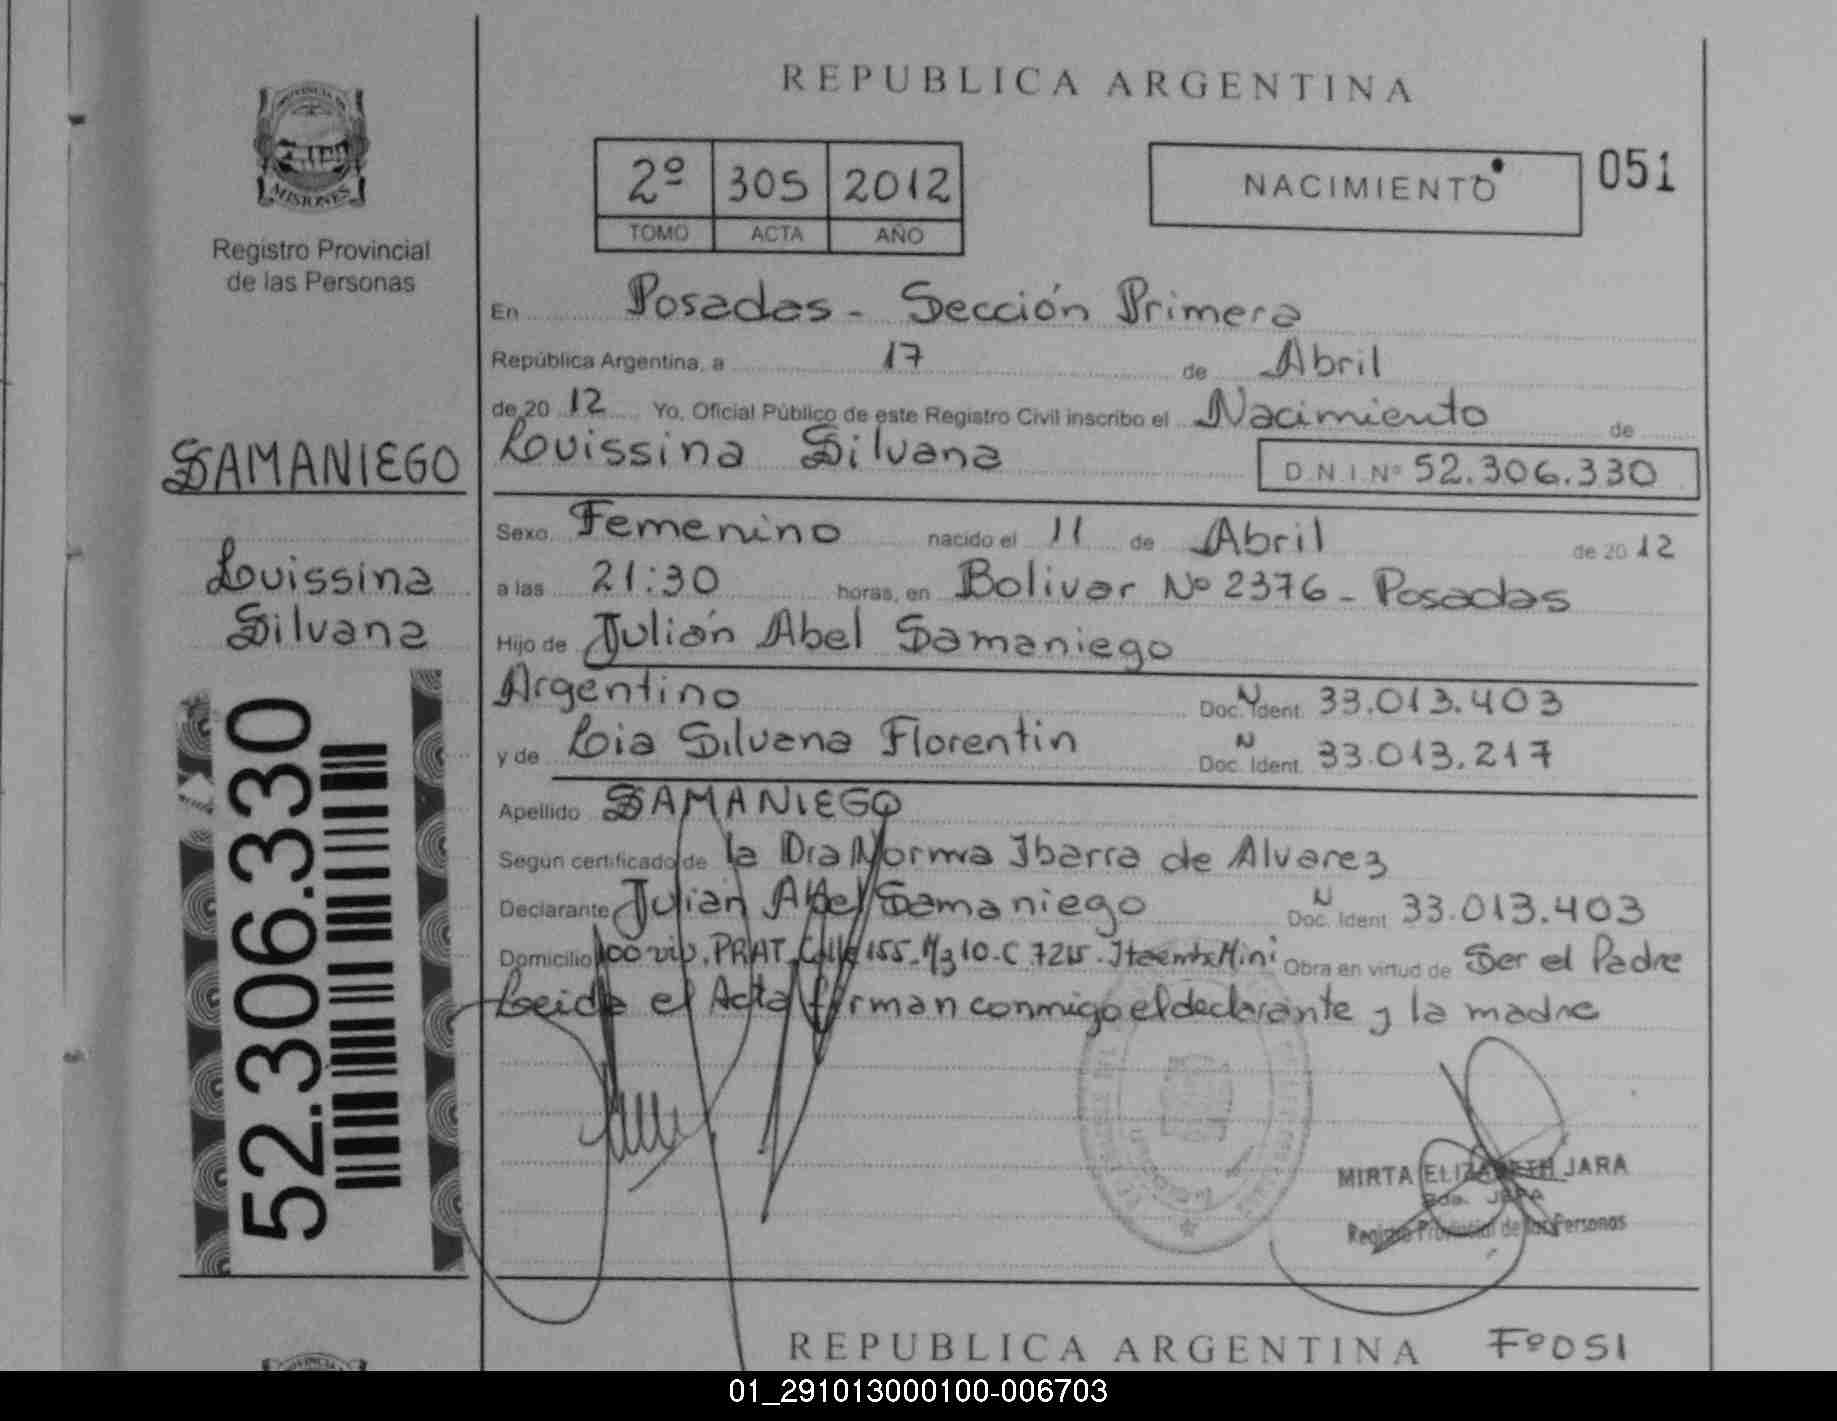 REPUBLICA ARGENTINA
PROVINCIA DE
MISIONES
Registro Provincial
de las Personas
2º 305 2012
TOMO ACTA AÑO
NACIMIENTO
051
En Posadas - Sección Primera
República Argentina, a 17 de Abril
de 20 12 Yo, Oficial Público de este Registro Civil inscribo el Nacimiento de
Louissina Silvana D.N.I. Nº 52.306.330
SAMANIEGO
Louissina
Silvana
52.306.330
Sexo Femenino nacido el 11 de Abril de 20 12
a las 21:30 horas, en Bolivar Nº 2376 - Posadas
Hijo de Julián Abel Samaniego
Argentino Doc. N Ident. 33.013.403
y de Lia Silvana Florentin Doc. N Ident. 33.013.217
Apellido SAMANIEGO
Según certificado de la Dra Norma Ibarra de Alvarez
Declarante Julian Abel Samaniego Doc. N Ident 33.013.403
Domicilio 100 viv. PRAT. Calle 155 - Mz 10 - C 7215 - Itaembe Mini Obra en virtud de Ser el Padre
Leida el Acta firman conmigo el declarante y la madre
MIRTA ELIZABETH JARA
Registro Provincial de las Personas
REPUBLICA ARGENTINA Fº051
01_291013000100-006703